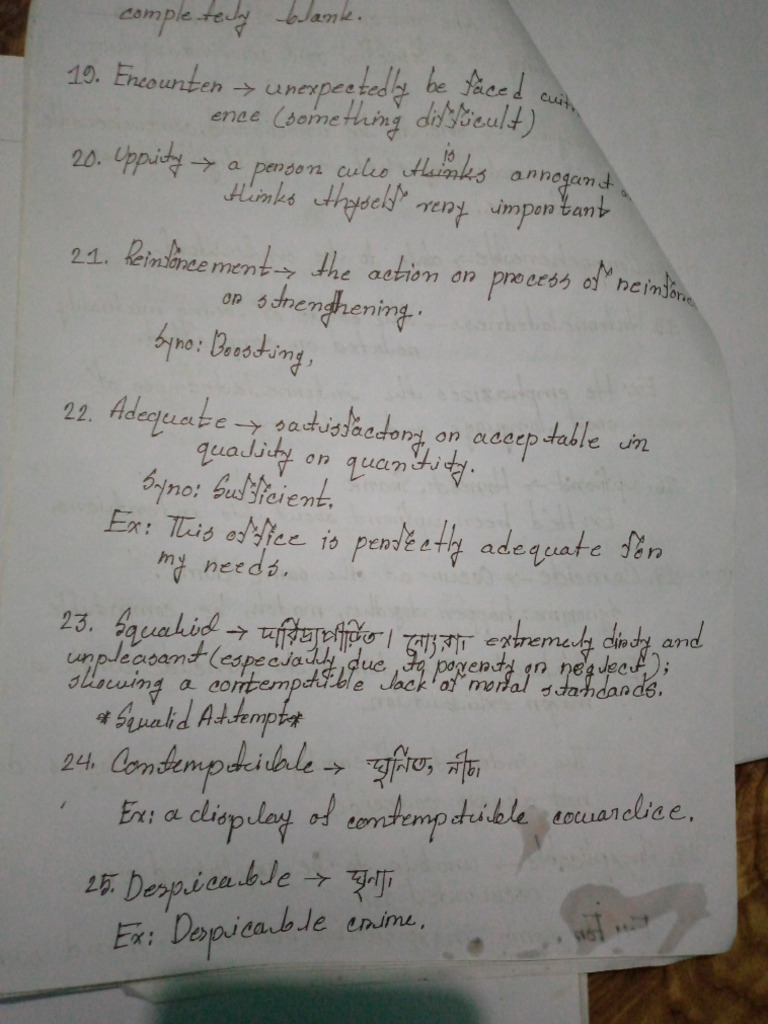 completely blank.
19. Encounter → unexpectedly be faced with
ence (something difficult)
20. Uppity → a person who is thinks arrogant
thinks thyself very important
21. Reinforcement → the action or process of reinforc
or strengthening.
Syno: Boosting,
22. Adequate → satisfactory or acceptable in
quality or quantity.
Syno: Sufficient.
Ex: This office is perfectly adequate for
my needs.
23. Squalid → দারিদ্র্যপীড়িত। নোংরা extremely dirty and
unpleasant (especially due to poverty or neglect);
showing a contemptible lack of moral standards.
*Squalid Attempt*
24. Contemptible → ঘৃনিত, নীচ
Ex: a display of contemptible cowardice.
25. Despicable → ঘৃন্য
Ex: Despicable crime.